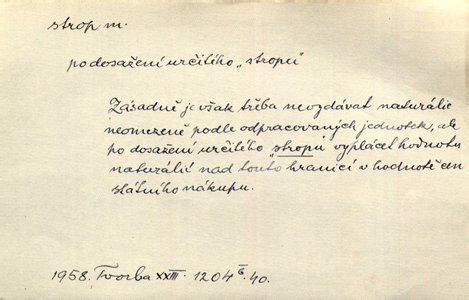 strop m.
po dosažení určitého „stropu“
Zásadně je však třeba nevydávat naturálie
neomezeně podle odpracovaných jednotek, ale
po dosažení určitého „stropu“ vyplácet hodnotu
naturálií nad touto hranicí v hodnotě cen
státního nákupu.
1958. Tvorba XXIII. 1204 6. 40.